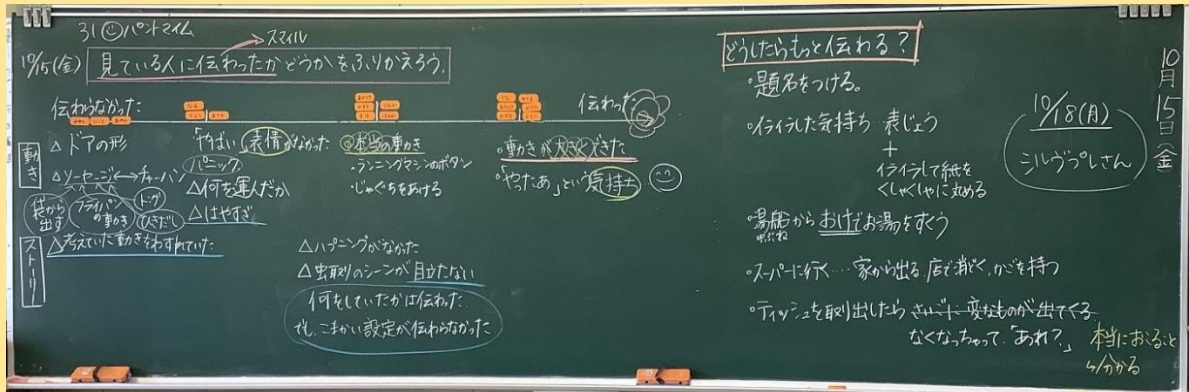 31☺パントマイム
スマイル
10/15(金) 見ている人に伝わったかどうかをふりかえろう。
伝わらなかった
伝わった
動き
△ドアの形
△ソーセージ↔チャーハン
袋から出す
フライパンの動き
トング
ひきだし
「やばい」表情がなかった
パニック
△何を運んだか
△はやすぎ
◎本当の動き
・ランニングマシンのボタン
・じゃぐちをあける
・動きが大きくできた
・「やったあ」という気持ち
ストーリー
△考えていた動きをわすれていた
△ハプニングがなかった
△虫取りのシーンが目立たない
何をしていたかは伝わった
でも、こまかい設定が伝わらなかった
どうしたらもっと伝わる?
・題名をつける。
・イライラした気持ち 表じょう
+
イライラして紙を
くしゃくしゃに丸める
・湯船からおけでお湯をすくう
ゆぶね
・スーパーに行く…家から出る、店で選ぶ、かごを持つ
・ティッシュを取り出したら さいごに変なものが出てくる
なくなっちゃって「あれ?」
本当におこること
分かる
10/18(月)
シルヴプレさん
10月15日(金)